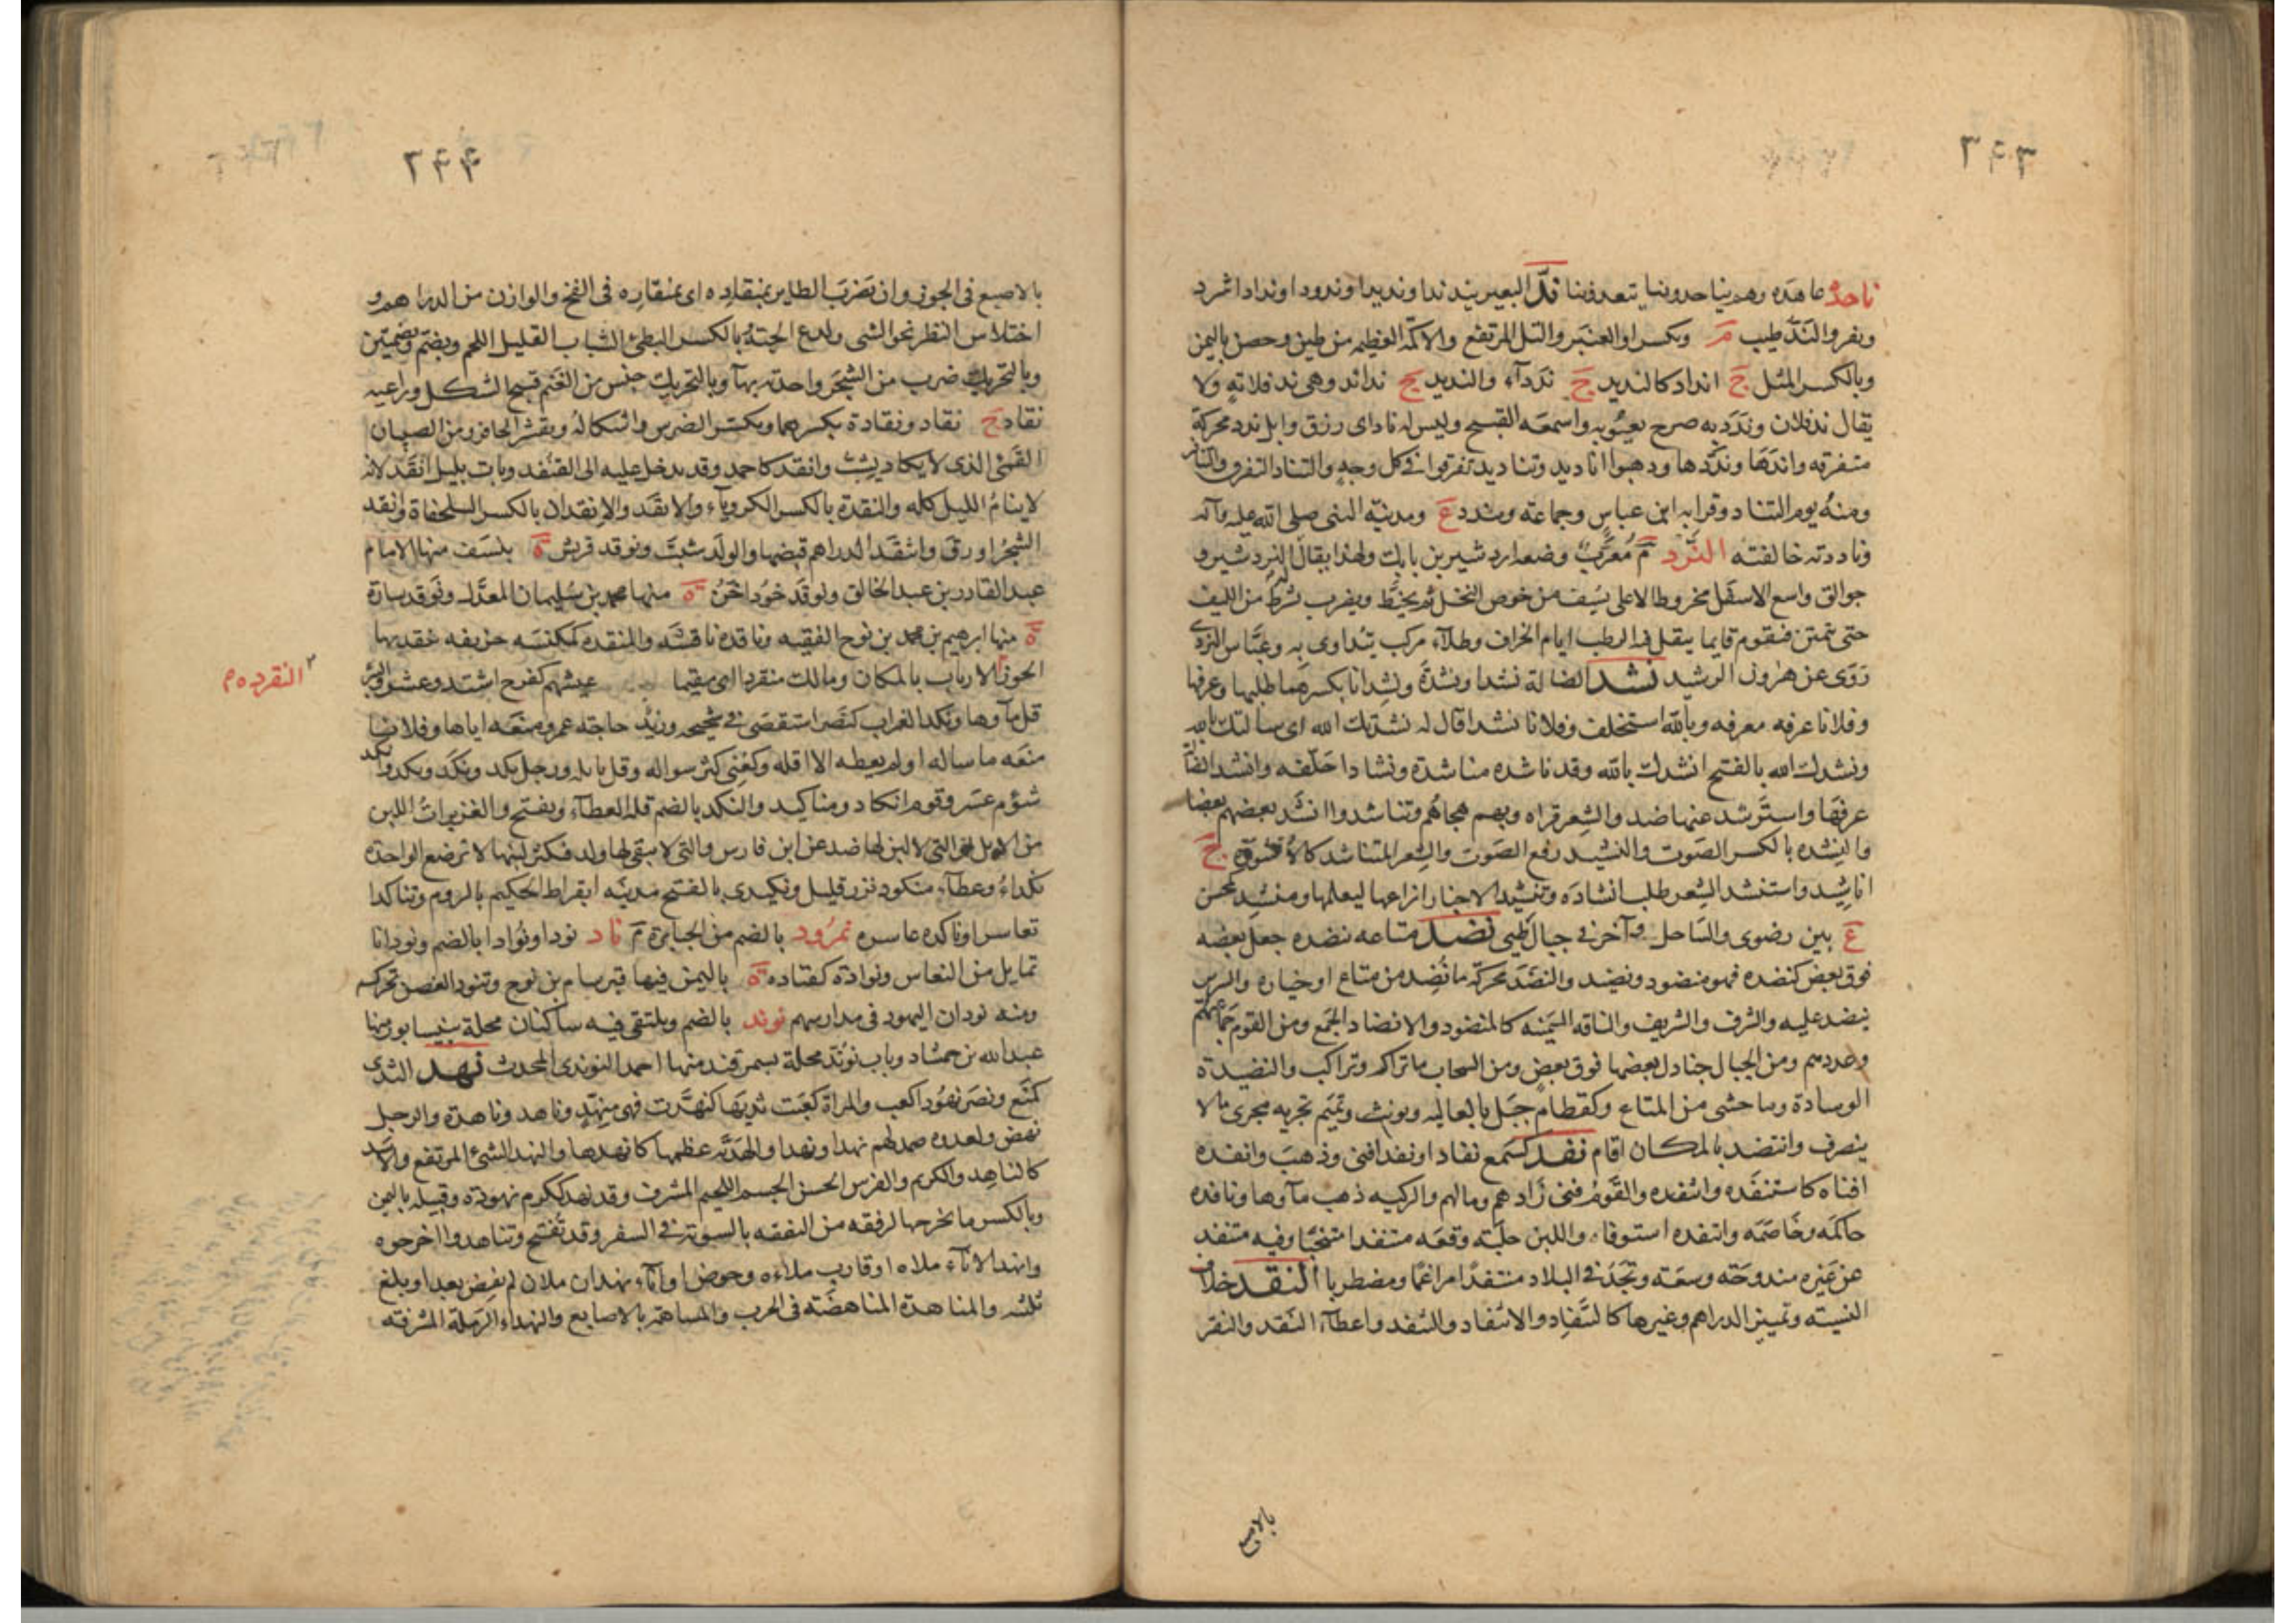 ٣۴٣
ناحده عاهده وهم يناحدوننا يتعهدوننا ندّ البعير يند ندا ونديدا وندودا وندادا شرد
ونفر والنَدّ طيب م ويكسر او العنبر والتل المرتفع والاكمّة العظيمه من طين وحصن باليمن
وبالكسر المثل ج انداد كالنديد ج ندَداء والنديد ج ندائد وهى ند فلانةٍ ولا
يقال ند فلان وندَّد به صرح بعيُوبه واسمعَه القبيح وليس له ناد اى رزق وابل ندد محركة
متفرقه واندّها وندّدها وذهبوا اناديد وتناديد تفرقوا فى كل وجهٍ والتناد التفرق والتنافر
ومنهُ يوم التناد وقرا به ابن عباس وجماعته ومندد ع ومدينة النبى صلى الله عليه وآله
وناددته خالفته النَّرد م مُعرَّبٌ وضعه اردشير بن بابك ولهذا يقال النردشير و
جوالق واسع الاسفل مخروط الاعلى يُسَف من خوص النخل ثم يخيَّط ويضرب بشُرُط من الليف
حتى يتمتن فيقوم قايما ينقل فيه الرطب ايام الخراف وطلاء مركب يُتداوى به وعبَّاس النردى
رَوَى عن هٰرون الرشيد نشد الضالة نشدا ونشدَةً ونِشدانا بكسرهما طلبها وعرفها
وفلانا عرفه معرفه وبالله استحلف وفلانا نشدا قال له نشدتك الله اى سألتك بالله
ونشدك الله بالفتح انشدك بالله وقد ناشده مناشدة ونشادا حَلّفه وانشد الضالّة
عرفها واسترشد عنها ضد والشعر قراه وبهم هجاهُم وتناشدوا انشد بعضهم بعضا
والنِشده بالكسر الصَوت والنشيد رفع الصَوت والشعر المتناشد كالأنشودة ج
اناشيد واستنشد الشِعر طلب انشادَه وتنشّد الاخبار اراغها ليعلمها ومنشِد كمحسن
ع بين رضوى والسَاحل وآخر فى جبال طيى نضَد متاعه نضده جعل بعضه
فوق بعض كنضده فهو منضود ونضيد والنضَدَ محركة ما نُضِد من متاع او خياره والسرير
ينضد عليه والشرف والشريف والناقه السَمينه كالمنضود والانضاد الجمع ومن القوم جماعتهم
وعددهم ومن الجبال جنادل بعضها فوق بعضٍ ومن السحاب ما تراكم وتراكب والنضيدة
الوسادة وما حشى من المتاع وكقطامِ جبَل بالعاليه ويونث وتميم تجريه مجرى ما لا
ينصرف وانتضد بالمكان اقام نفد كسَمع نفادا ونفدا فنى وذهب وانفده
افناه كاستنفَده وانتفده والقومُ فنى زادهم ومالهم والركيه ذهب مآوها ونافده
حاكمَه وخاصَمَه وانتفده استوفاه واللبن حلبَه وقعَد منتفدا متنحيّا وفيه منتفد
عن غيره مندوحَة وسعَة وتجد فى البلاد منتفدًا مراغمًا ومضطربا النقد خلاف
النسيئه وتمييز الدراهم وغيرها كالتَنقاد والانتقاد والتنقد واعطاء النقد والنقر
بالاصبع
٣۴۴
بالاصبع فى الجوز وان يَضربَ الطاير بمنقاده اى بمنقاره فى الفخ والوازن من الدراهم و
اختلاس النظر نحو الشى ولدغ الحيّةُ بالكسر البطئ الشباب القليل اللحم ويضم وبضمتين
وبالتحريك ضرب من الشجَر واحدته بهآ وبالتحريك جنس من الغنم قبيح الشكل وراعيه
نقاد ج نقاد ونقادة بكسرهما وتكسّر الضرس وائتكاله وتقشّر الحافر ومن الصبيان
القمئ الذى لا يكاد يشبّ وانقد كاحمد وقد يدخل عليه ال القنفذ وبات بليل انقَد لانه
لا ينامُ الليل كله والنقدة بالكسر الكروياء والانقَد والإنقدان بالكسر السلحفاة وانقد
الشجَرُ اورق وانتقَد الدراهم قبضها والولَد شبّ ونوقد قريش ة بنسَف منها الامام
عبد القادر بن عبد الخالق ونوقَد خُورداخُنُ ة منها محمد بن سليمان المعدَّل ونوقد سازة
ة منها ابرهيم بن محمد بن نوح الفقيه وناقده ناقشَه والمنقده كمكنسَه خزيفه ينقد بها
الجوز الارباب بالمكان ومالك منقردا اى مقيما عيشهم كفرح اشتد وعسُر والبئر
النقرده م
قل مآوها ونكد الغراب كنصَر استقصَى فى شحيجه وزيدٌ حاجته عمرو منعَه اياها وفلانا
منعَه ما ساله او لم يعطه الا اقله وكعُنى كثر سواله وقل نايله ورجل نكد ونكَد ونكد وانكد
شؤم عَسِر وقوم انكاد ومناكيد والنكد بالضم قلة العطآء ويفتح والغزيراتُ اللبن
من الابل والتى لا لبن لها ضد عن ابن فارس والتى لا يبقى لها ولد فكثر لبنها لا ترضع الواحدة
نكداءُ وعطاء منكود نزر قليل ونكيدى بالفتح مدينة ابقراط الحكيم بالروم وتناكدا
تعاسرا وناكده عاسره نمرُود بالضم من الجبابرة م ناد نودا ونُوادا بالضم ونودانا
تمايل من النعاس ونوادة كقتاده ة باليمن فيها قبر سام بن نوح وتنود الغصن تحركه
ومنه نودان اليهود فى مدارسهم نوند بالضم ويلتقى فيه ساكنان محلة بنيسابور منها
عبد الله بن حمشاد وباب نوند محلة بسمرقند منها احمد النوندى المحدث نهد الثدى
كمَنع ونصَر نهُودا كعب والمراة كعَبَت ثديها كنهّدت فهى منهّدٍ وناهد وناهدة والرجل
نهض ولعدوه صمد لهم نهدا ونهدا والهَدَيّه عظمها كانهدها والنهد الشئ المرتفع والاسَد
كالناهِد والكريم والفرس الحسن الجسم اللحيم المشرف وقد نهد ككرم نهودة وقبيلة باليمن
وبالكسر ما تخرجها لرفقه من النفقه بالسويّة فى السفر وقد تُفتح وتناهدوا اخرجوه
وانهد الاناء ملاه او قارب ملاءه وحوض واناء نهدان ملان لم يفض بعد او بلغ
ثلثيه والمناهدة المناهضَة فى الحرب والمساهمة بالاصابع والنهداء الرَملة المشرفه